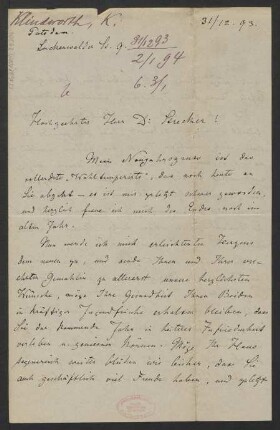 Klindworth, K. 31/12 93.
Potsdam
Luckenwalder Str. 9. 31/12 93
2/1 94
6. 3/1
Hochgeehrter Herr Dr. Strecker!
Mein Neujahrsgruss ist das
vollendete „Wohltemperirte", das noch heute an
Sie abgeht – es ist mir zuletzt schwer geworden,
und herzlich freue ich mich des Endes noch im
alten Jahr.
Nun wende ich mich erleichterten Herzens
dem neuen zu, und sende Ihnen und Ihrer ver-
ehrten Gemahlin zu allererst unsre herzlichsten
Wünsche, möge Ihre Gesundheit Ihnen Beiden
in kräftiger Jugendfrische erhalten bleiben, dass
Sie das kommende Jahr in heiterer Zufriedenheit
verleben u. geniessen können. Möge Ihr Haus
segensreich weiter blühen wie bisher, dass Sie
auch geschäftlich viel Freude haben, und zuletzt